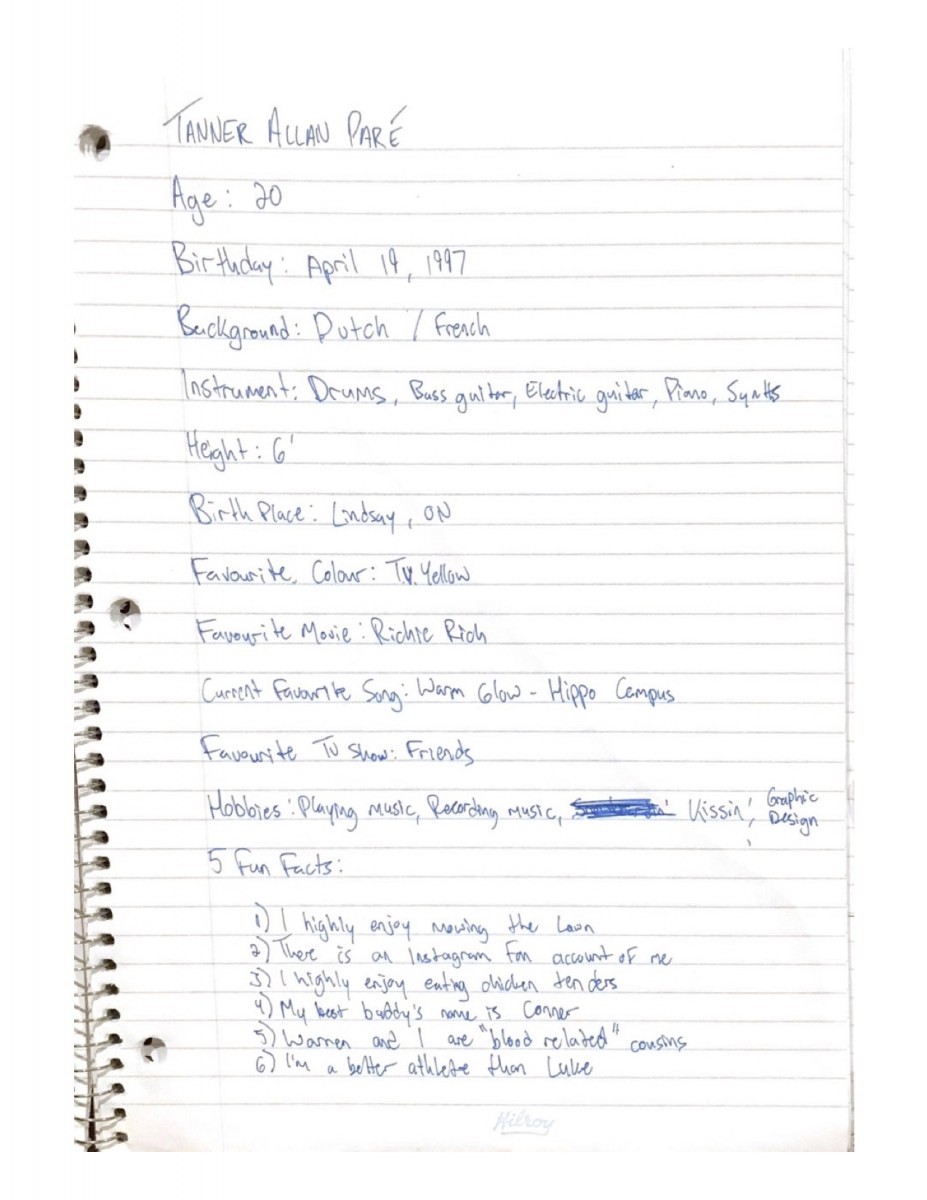 TANNER ALLAN PARÉ
Age: 20
Birthday: April 19, 1997
Background: Dutch / French
Instrument: Drums, Bass guitar, Electric guitar, Piano, Synths
Height: 6'
Birth Place: Lindsay, ON
Favourite Colour: Tv. Yellow
Favourite Movie: Richie Rich
Current Favourite Song: Warm Glow - Hippo Campus
Favourite TV Show: Friends
Hobbies: Playing music, Recording music, Kissin', Graphic
Design
5 Fun Facts:
1) I highly enjoy mowing the Lawn
2) There is an Instagram fan account of me
3) I highly enjoy eating chicken tenders
4) My best buddy's name is Conner
5) Warren and I are "blood related" cousins
6) I'm a better athlete than Luke
Hilroy